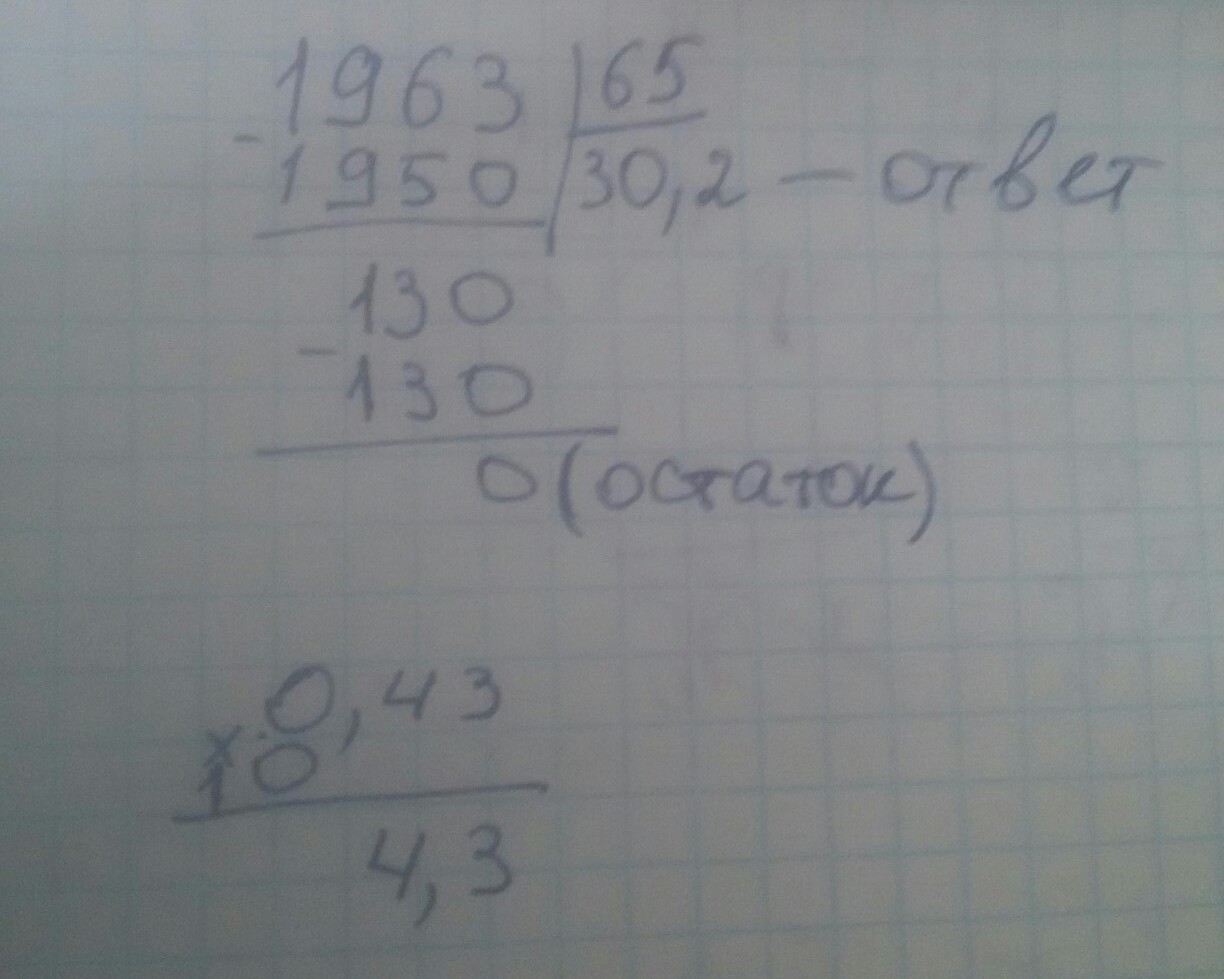 1963 65
- 1950 30,2 — ответ
130
- 130
0 (остаток)
0,43
x 10
4,3